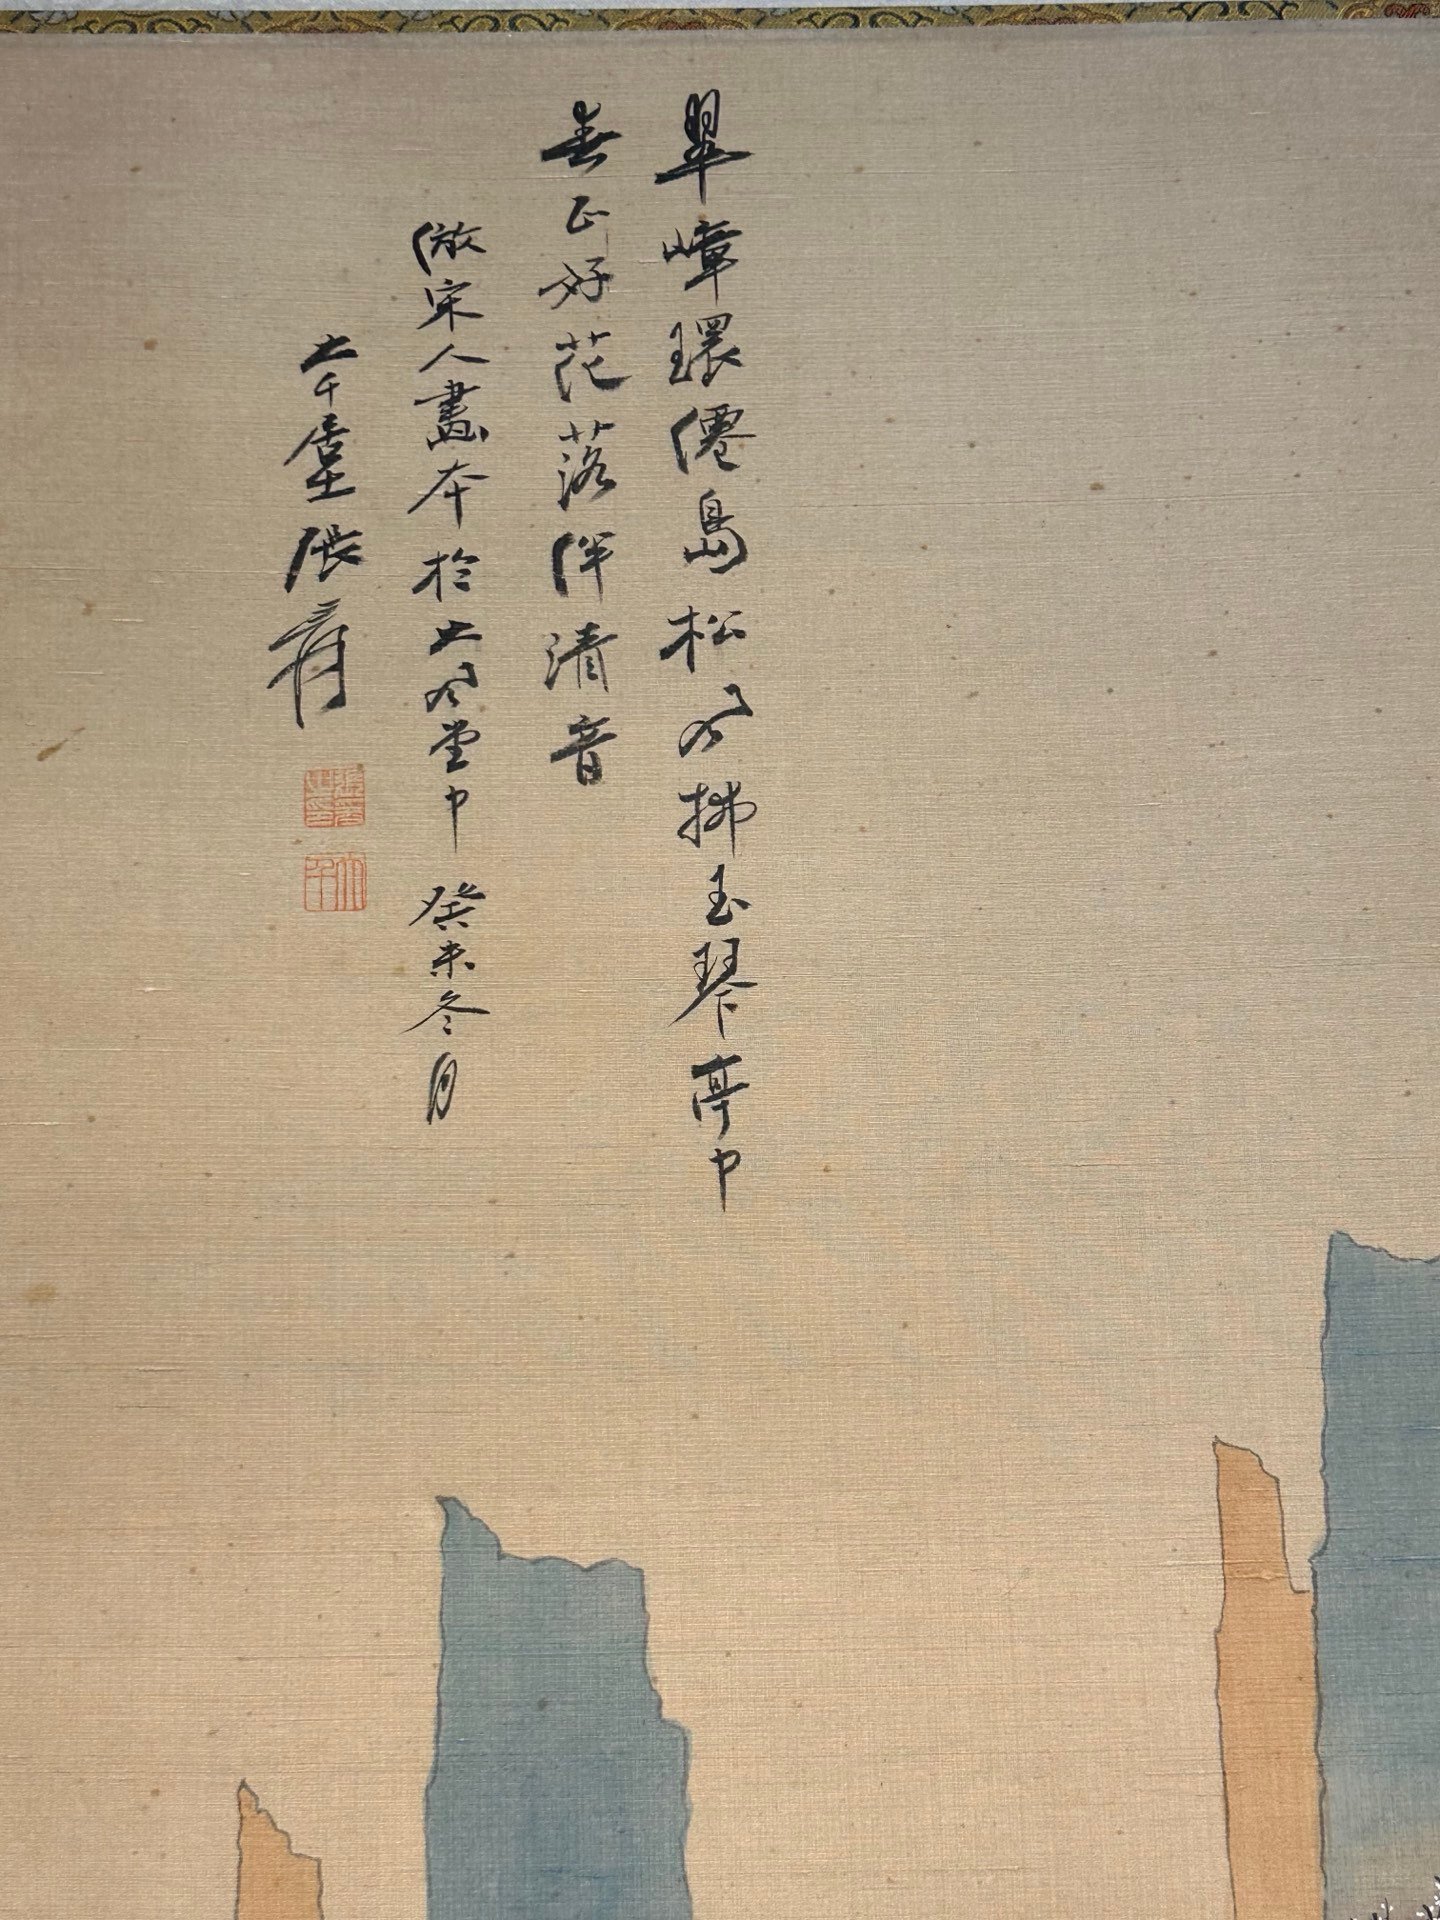 翠嶂環僊島松風拂玉琴亭中
春正好花落伴清音
倣宋人畫本於大風堂中 癸未冬月
大千居士張爰
張爰之印
大千